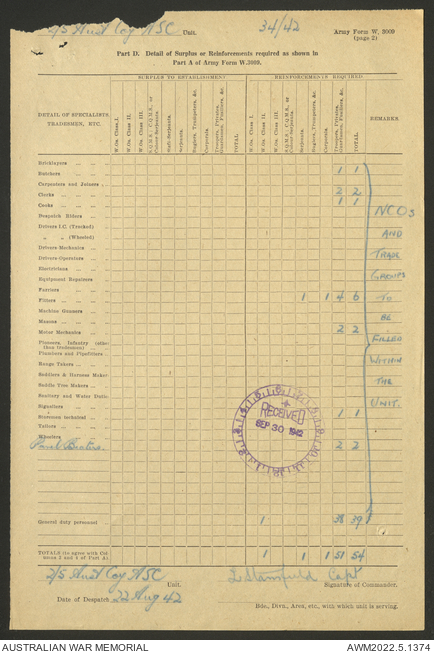 2/5 Aust Coy ASC Unit. 34/42 Army Form W. 3009
(page 2)
Part D. Detail of Surplus or Reinforcements required as shown in
Part A of Army Form W.3009.
SURPLUS TO ESTABLISHMENT REINFORCEMENTS REQUIRED
DETAIL OF SPECIALISTS TRADESMEN, ETC. W.Os. Class I. W.Os. Class II. W.Os. Class III. S.Q.M.S., C.Q.M.S., or Colour-Serjeants. Staff-Serjeants. Serjeants. Buglers, Trumpeters, &c. Corporals. TOTAL W.Os. Class I. W.Os. Class II. W.Os. Class III. S.Q.M.S., C.Q.M.S., or Colour-Serjeants. Serjeants. Buglers, Trumpeters, &c. Corporals. TOTAL. REMARKS.
Bricklayers
Butchers 1 1
Carpenters and Joiners
Clerks 2 2
Cooks 1 1
NCOs
Despatch Riders
Drivers I.C. (Tracked)
„ „ (Wheeled) AND
Drivers-Mechanics
Drivers-Operators TRADE
Electricians
Equipment Repairers GROUPS
Farriers
Fitters 1 1 4 6 TO
Machine Gunners
Masons BE
Motor Mechanics 2 2
Pioneers, Infantry (other than tradesmen) FILLED
Plumbers and Pipefitters
Range Takers WITHIN
Saddlers & Harness Maker
Saddle Tree Makers THE
Sanitary and Water Duties
Signallers UNIT.
Storemen technical 1 1
Tailors
Wheelers
Panel Beaters. 2 2
RECEIVED
SEP 30 1942
General duty personnel 1 38 39
TOTALS (to agree with Columns 2 and 4 of Part A) 1 1 1 51 54
2/5 Aust Coy ASC Unit. Capt
Signature of Commander.
Date of Despatch 22 Aug 42
Bde., Divn., Area, etc., with which unit is serving.
AUSTRALIAN WAR MEMORIAL AWM2022.5.1374